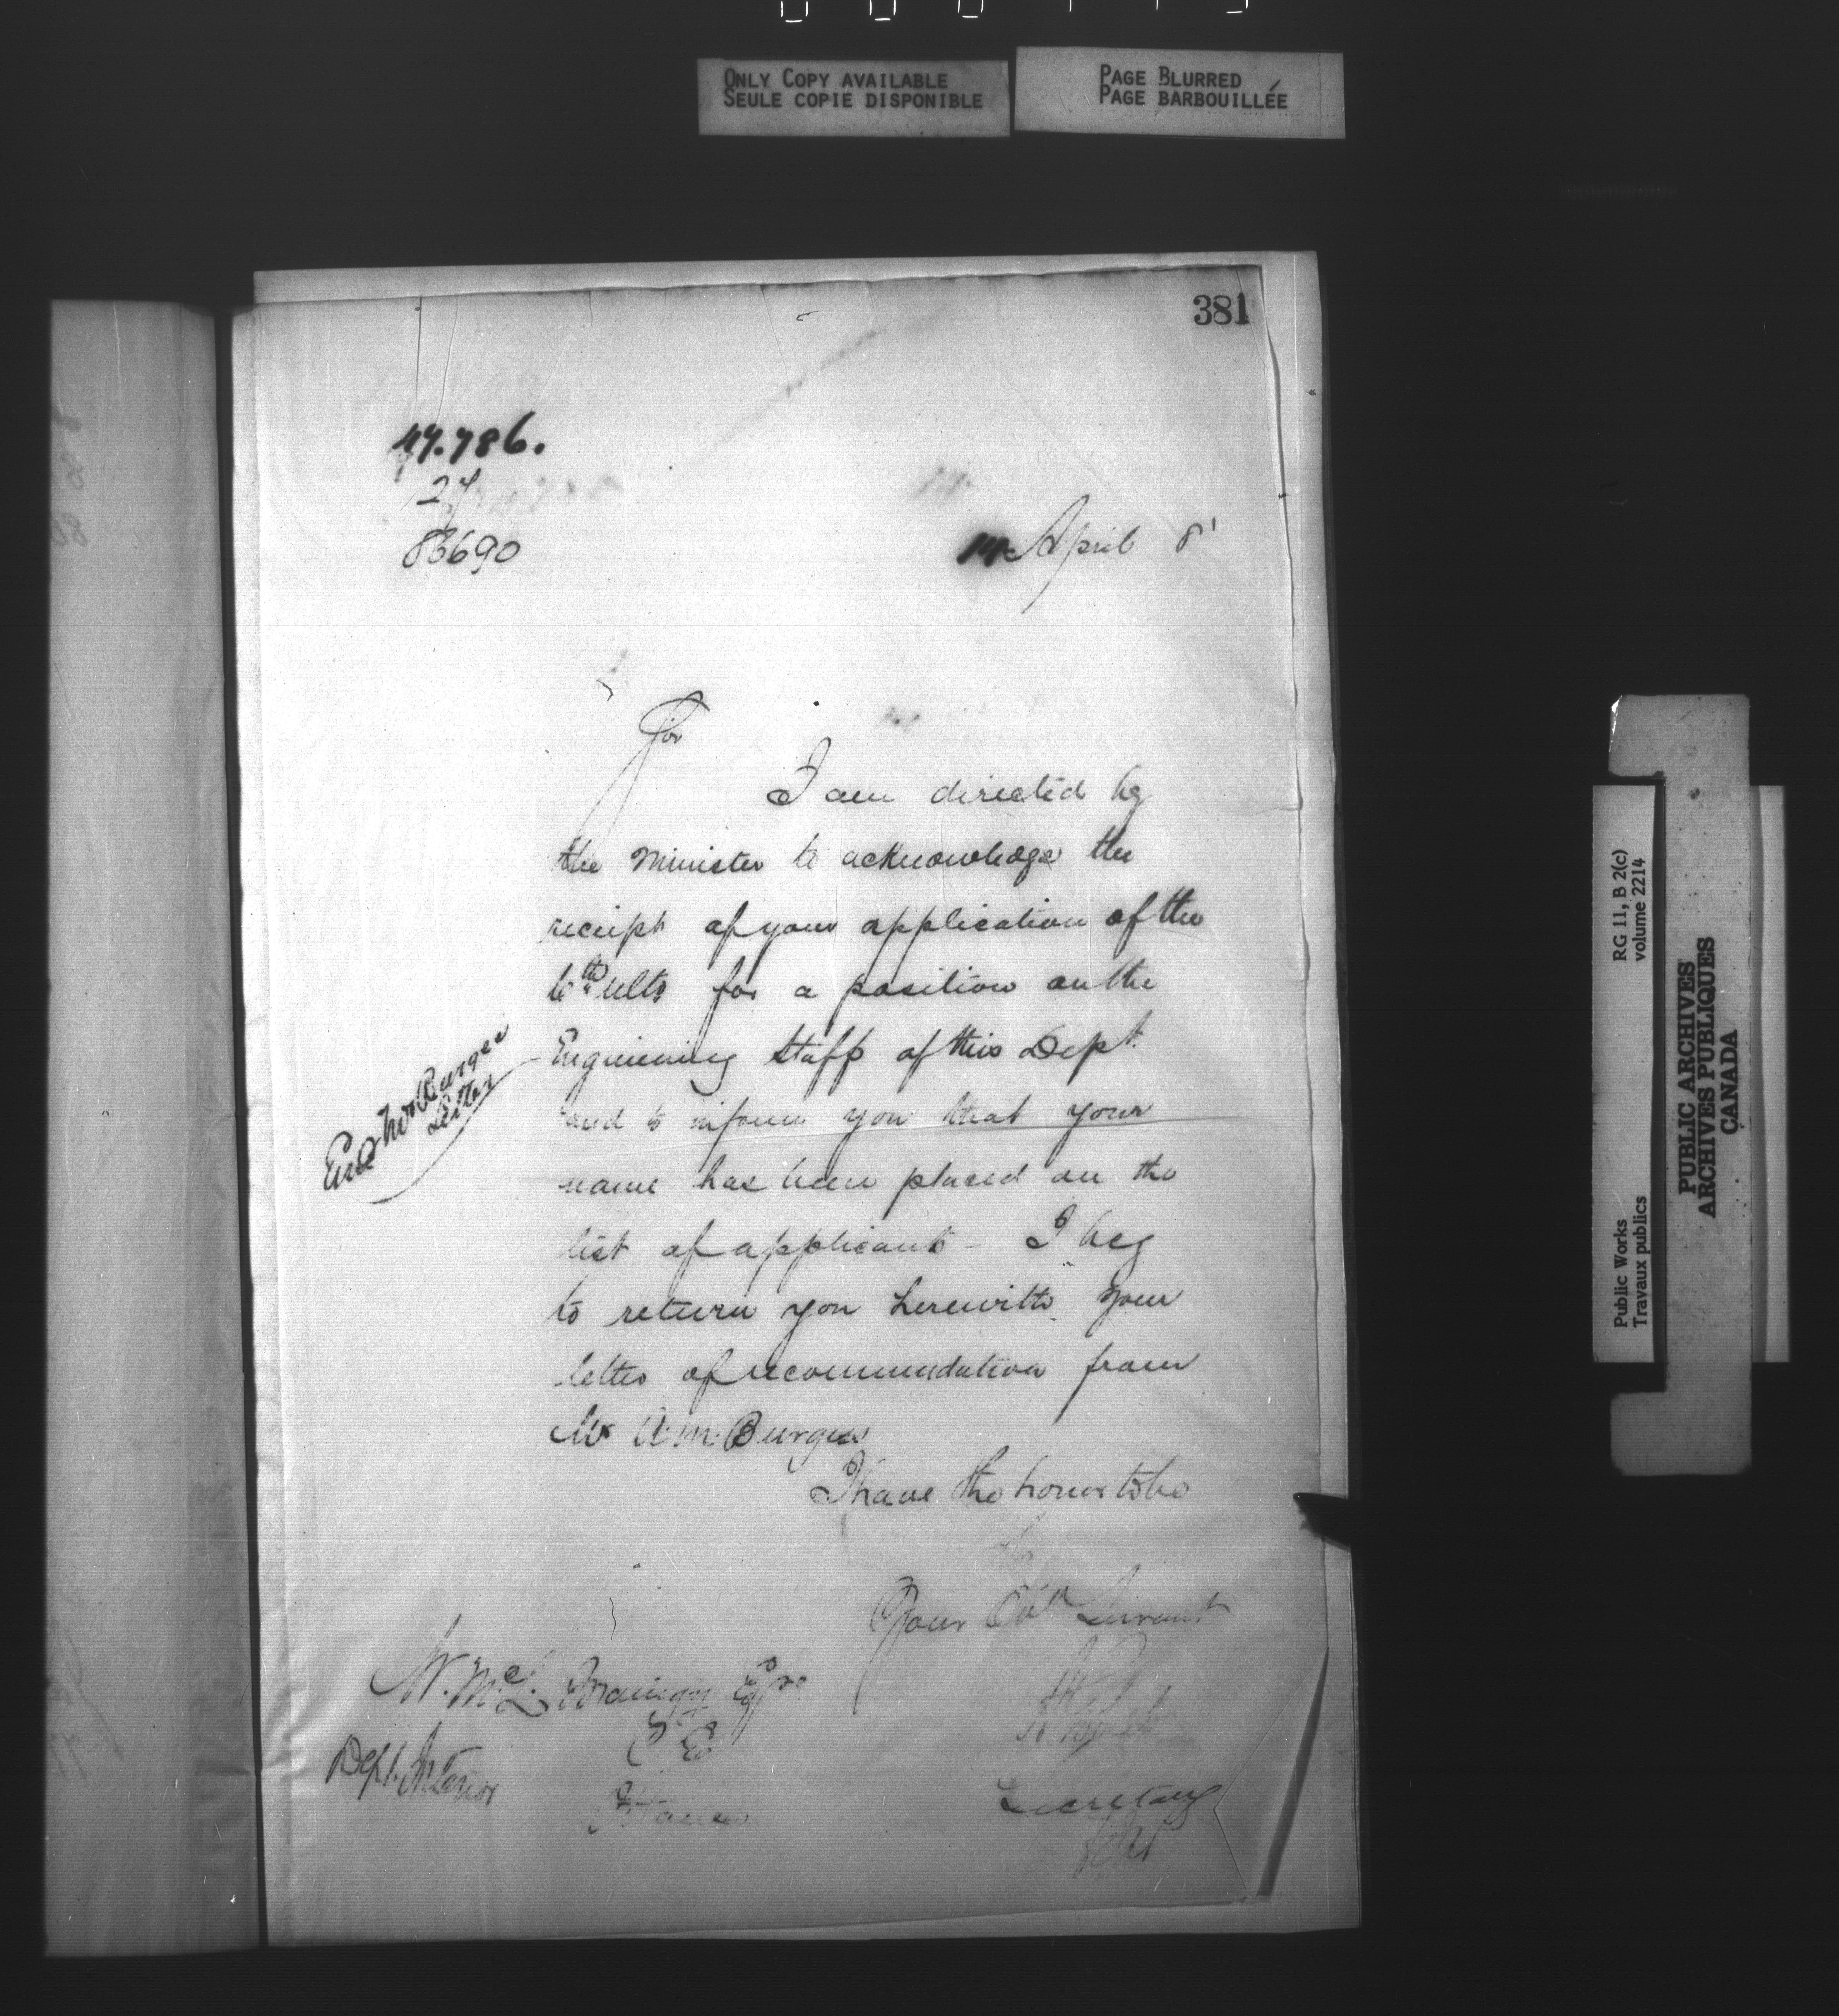 ONLY COPY AVAILABLE
SEULE COPIE DISPONIBLE
PAGE BLURRED
PAGE BARBOUILLÉE
381
47.786.
27
86690
14 April 81
Sir
I am directed by
the Minister to acknowledge the
receipt of your application of the
6th ulto for a position on the
Engineering Staff of this Dept.
and to inform you that your
name has been placed on the
list of applicants - I beg
to return you herewith your
letter of recommendation from
Mr A. M. Burgess
I have the honor to be
Your Obt Servant
Secretary
Encl Mr Burgess
Letter
W. McL. Esqre
C E
Dept. Interior
Ottawa
RG 11, B 2(c)
volume 2214
Public Works
Travaux publics
PUBLIC ARCHIVES
ARCHIVES PUBLIQUES
CANADA